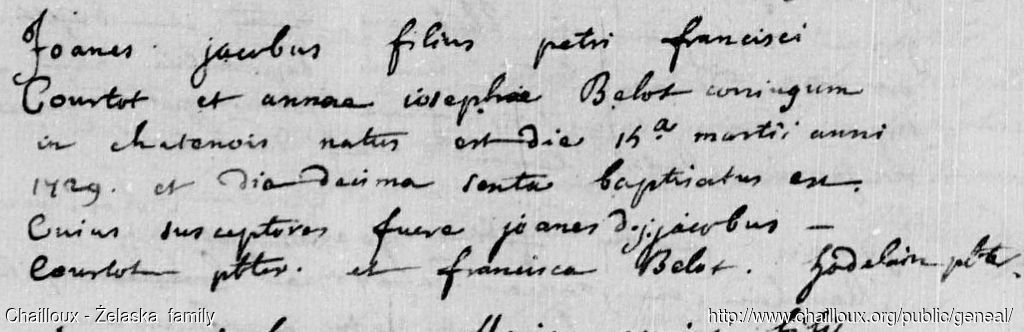 Joanes jacobus filius petri francisci
Courtot et annae iosephae Belot coniugum
in chatenois natus est die 15a martii anni
1729. et die decima sexta baptisatus est.
Cuius susceptores fuere joanes jacobus –
Courtot pbter. et francisca Belot.
Chailloux - Żelaska family
http://www.chailloux.org/public/geneal/